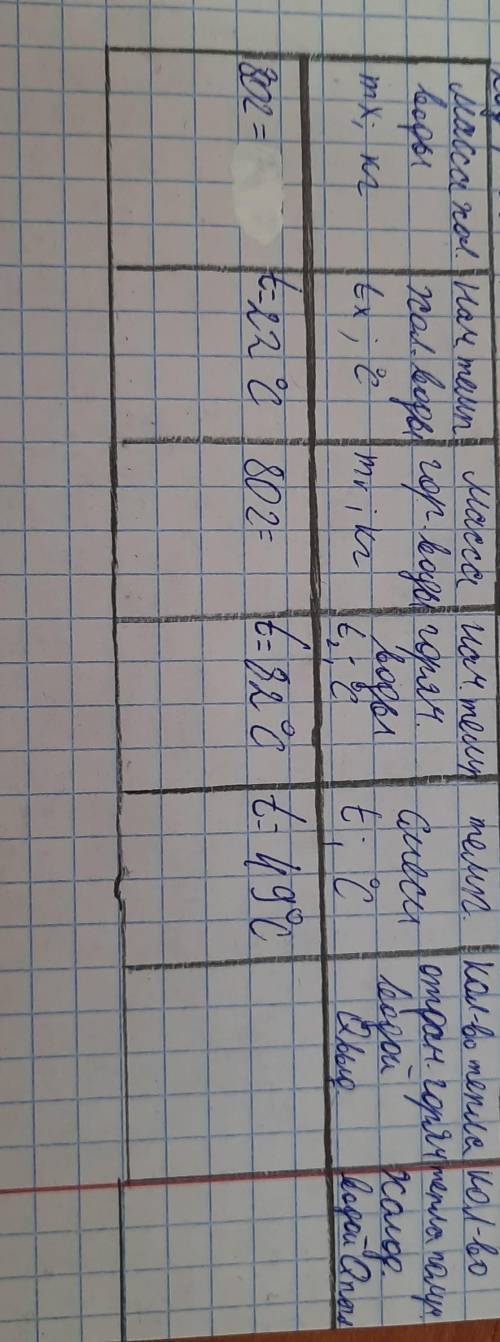 масса хол.
воды
mх; кг
нач. темп
хол. воды
tх; °C
масса
гор. воды
mг; кг
нач. темп
горяч.
воды
t2; °C
темп.
смеси
t; °C
кол-во тепла
отдан. горяч
водой
Qвыд.
кол-во
тепла получ.
холод.
водой Qпол
80г=
t=22°C
80г=
t=82°C
t=49°C